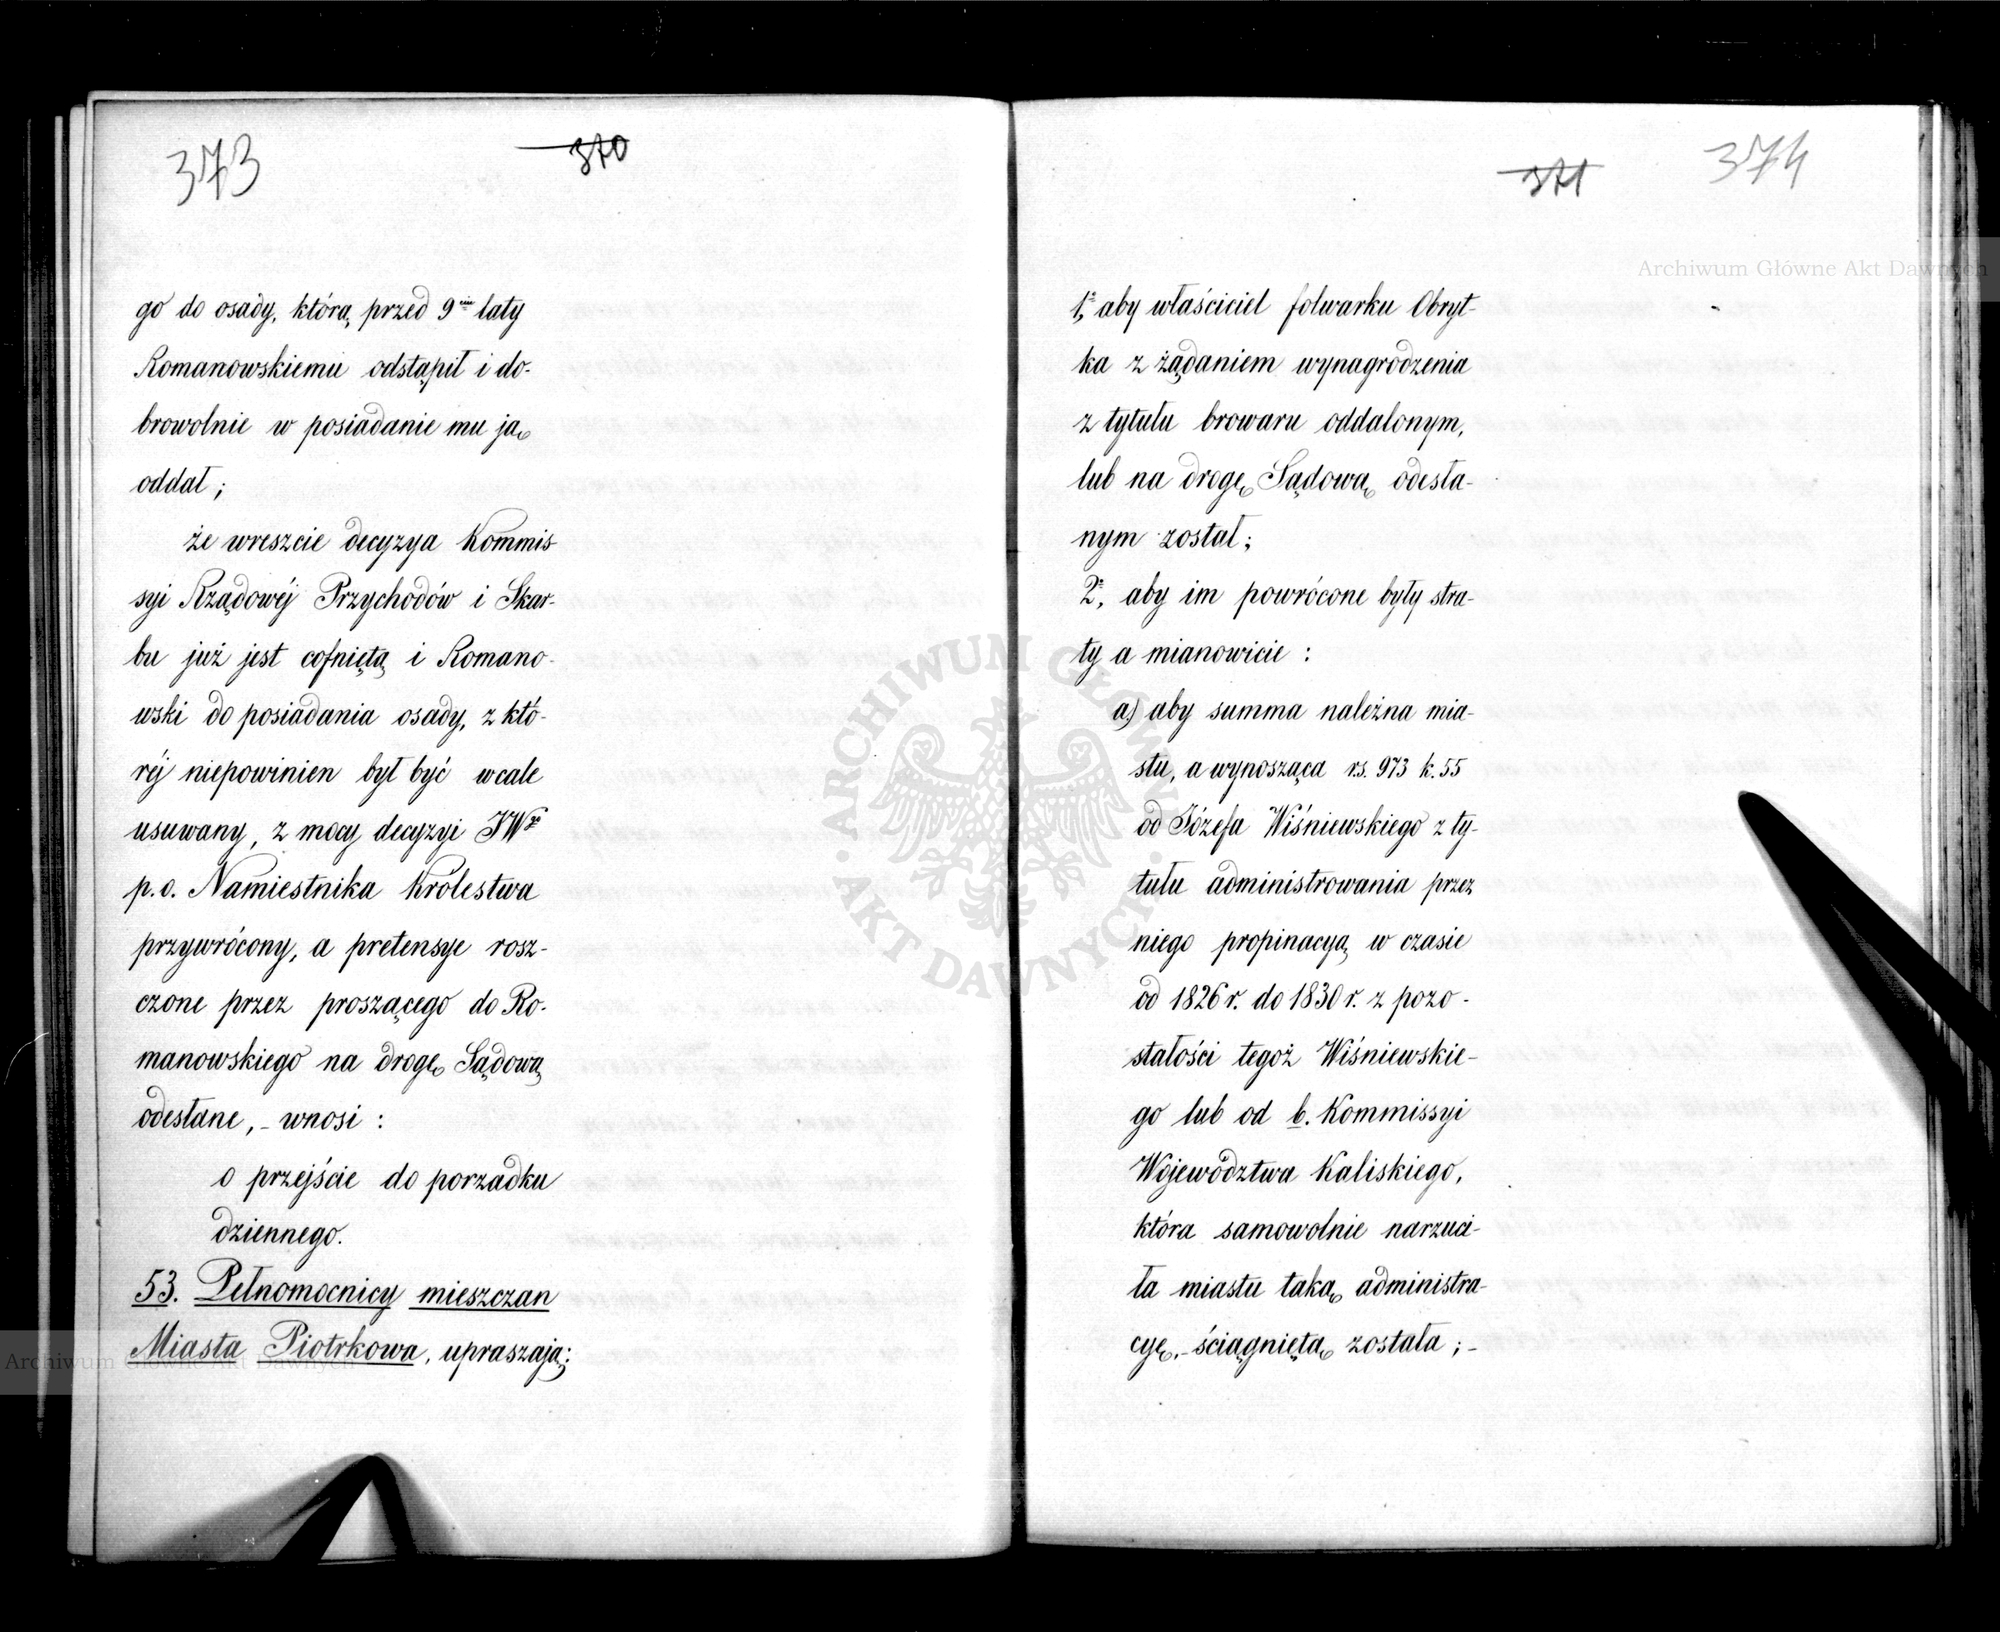 373
370
go do osady, którą przed 9ciu laty
Romanowskiemu odstąpił i do-
browolnie w posiadanie mu ją
oddał;
że wreszcie decyzya Kommis
syi Rządowéj Przychodów i Skar-
bu już jest cofniętą i Romano-
wski do posiadania osady, z któ-
réj niepowinien był być wcale
usuwany, z mocy decyzyi JWgo
p.o. Namiestnika Królestwa
przywrócony, a pretensye rosz-
czone przez proszącego do Ro-
manowskiego na drogę Sądową
odesłane, - wnosi:
o przejście do porządku
dziennego.
53. Pełnomocnicy mieszczan
Miasta Piotrkowa, upraszają:
371
374
1º, aby właściciel folwarku Obryt-
ka z żądaniem wynagrodzenia
z tytułu browaru oddalonym,
lub na drogę Sądową odesła-
nym został;
2º, aby im powrócone były stra-
ty a mianowicie:
a) aby summa należna mia-
stu, a wynosząca rs. 973 k. 55
od Józefa Wiśniewskiego z ty-
tułu administrowania przez
niego propinacyą w czasie
od 1826 r. do 1830 r. z pozo-
stałości tegoż Wiśniewskie-
go lub od b. Kommissyi
Województwa Kaliskiego,
która samowolnie narzuci-
ła miastu taką administra-
cyę, - ściągniętą została; -
Archiwum Główne Akt Dawnych
Archiwum Główne Akt
ARCHIWUM GŁÓWNE AKT DAWNYCH